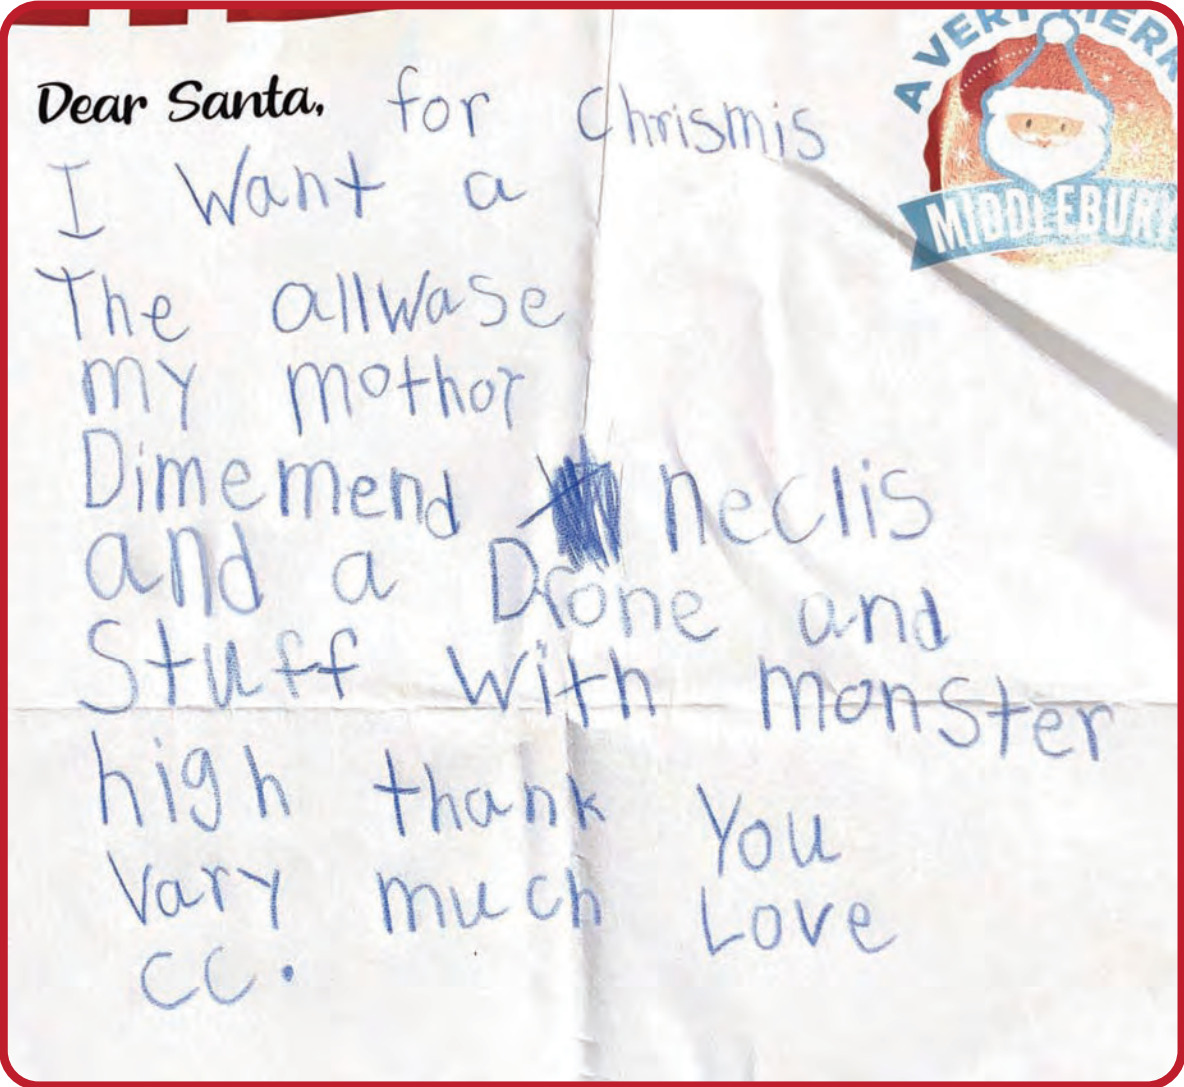 A VERY MERR
MIDDLEBURY
Dear Santa, for Chrismis
I Want a
The allwase
my mothor
Dimemend neclis
and a Drone and
Stuff with monster
high thank You
Vary much Love
CC.